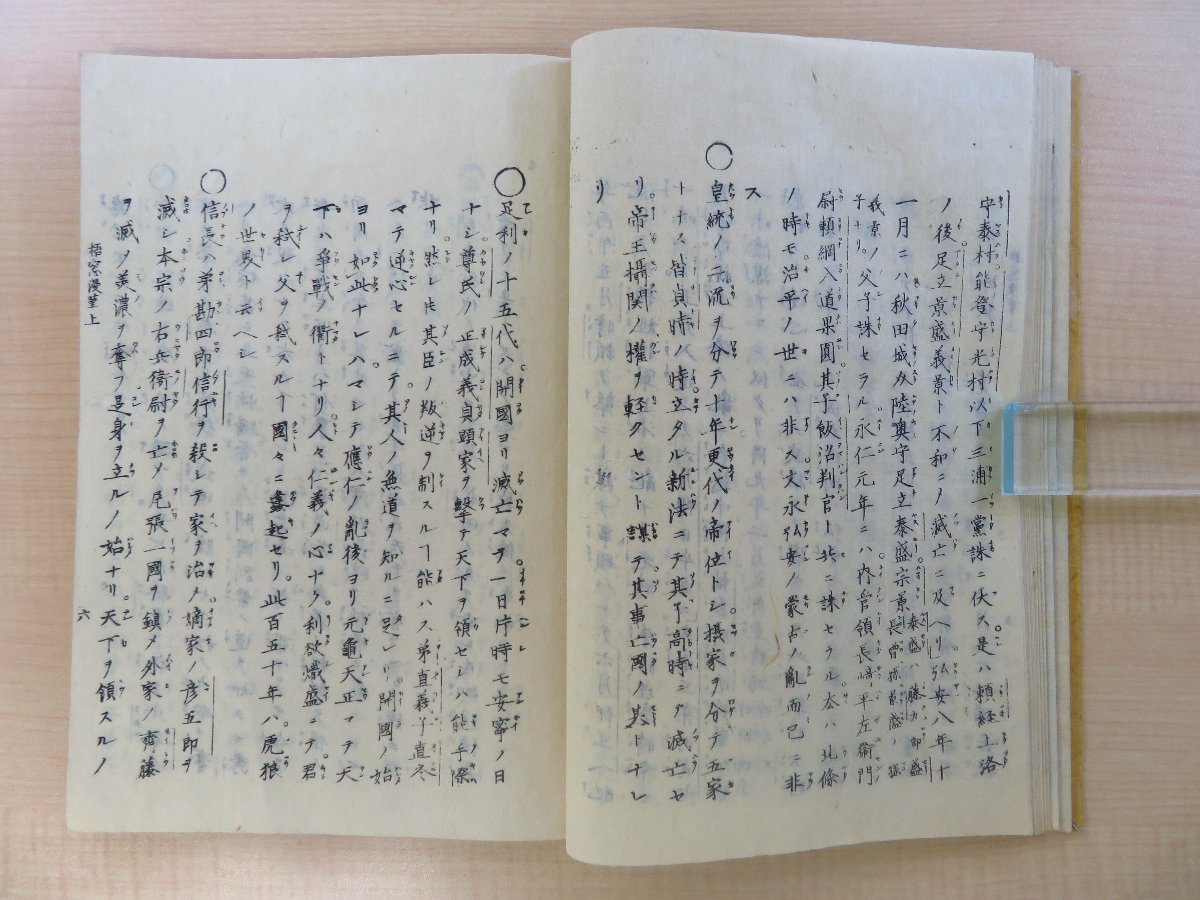 守泰村能登守光村以下三浦一黨誅ニ伏ス是ハ頼経上洛
ノ後足立景盛義景ト不和ニノ滅亡ニ及ヘリ弘安八年十
一月ニハ秋田城介陸奥守足立泰盛宗景泰盛ハ藤九郎盛長曽孫景盛ノ孫
義景ノ子ナリ父子誅セラル永仁元年ニハ内管領長﨑平左衛門
尉頼綱入道果圓其子飯沼判官ト共ニ誅セラル本ハ北條
ノ時モ治平ノ世ニハ非ス文永弘安ノ蒙古ノ亂而已ニ非
ス
◯皇統ノ二流ヲ分テ十年更代ノ帝位トシ摂家ヲ分テ五家
トナス皆貞時ノ時立タル新法ニテ其子高時ニ〆滅亡セ
リ帝王攝関ノ權ヲ軽クセント謀テ其事亡國ノ基トナレ
リ
◯足利ノ十五代ハ開國ヨリ滅亡マヲ一日片時モ安寧ノ日
ナシ尊氏ノ正成義貞頭家ヲ撃テ天下ヲ領セシハ能手際
ナリ然レ𪜈其臣ノ叛逆ヲ制スルヿ能ハス弟直義子直冬
マテ逆心セルニテ其人ノ無道ヲ知ルニ足レリ開國ノ始
ヨリ如此ナレハマシテ應仁ノ亂後ヨリ元龜天正マヲ天
下ハ爭戰ノ衢トナリ人々仁義ノ心ナク利欲熾盛ニテ君
ヲ弑シ父ヲ弑スルヿ國々ニ蜂起セリ此百五十年ハ虎狼
ノ世界ト云ヘシ
◯信長ハ弟勘四郎信行ヲ殺シテ家ヲ治ノ嫡家ノ彦五郎ヲ
滅シ本宗ノ右兵衛尉ヲ亡メ尾張一國ヲ鎮メ外家ノ齊藤
ヲ滅ノ美濃ヲ奪フ是身ヲ立ルノ始ナリ天下ヲ領スルノ
梧窓漫筆上
六